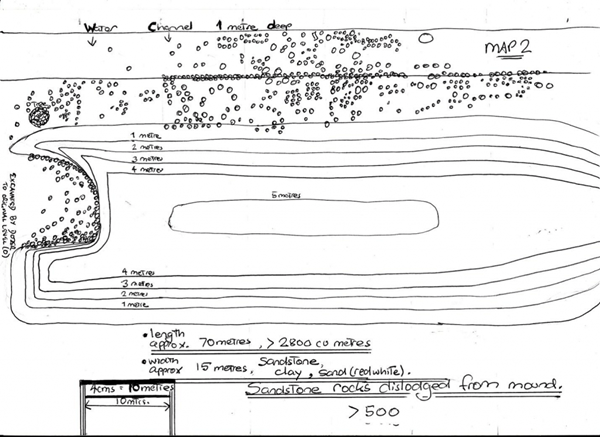 Water Channel 1 metre deep
MAP 2
1 metre
2 metres
3 metres
4 metres
5 metres
EXCAVATED BY DOZER
TO ORIGINAL LEVEL (O)
4 metres
3 metres
2 metres
1 metre
• length
approx. 70 metres, > 2800 cu metres
• width
approx 15 metres,
Sandstone,
clay, sand (red/white).
4cms = 10 metres
10 mtrs.
Sandstone rocks dislodged from mound.
> 500